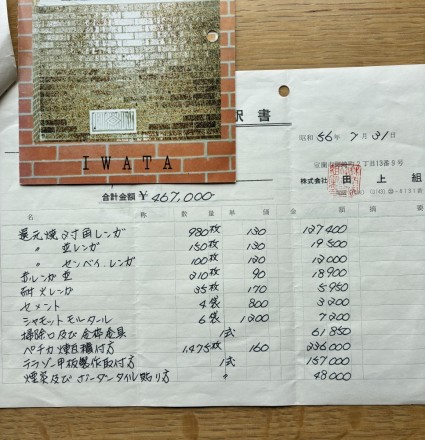 IWATA
訳書
昭和 56年 7月 31日
2丁目13番9号
株式会社 田上組
合計金額 ¥467,000-
名 称 数量 単価 金額 摘要
還元焼 3寸角レンガ 980枚 130 127400
〃 並レンガ 150枚 130 19500
〃 センベイレンガ 100枚 120 12000
赤レンガ並 210枚 90 18900
耐火レンガ 35枚 170 5950
セメント 4袋 800 3200
シャモットモルタル 6袋 1200 7200
掃除口及び金棒金具 1式 61850
ペチカ煉瓦積付方 1.475枚 160 236000
テラゾー甲板製作取付方 1式 157000
煙突及びボーダータイル貼り方 〃 48000